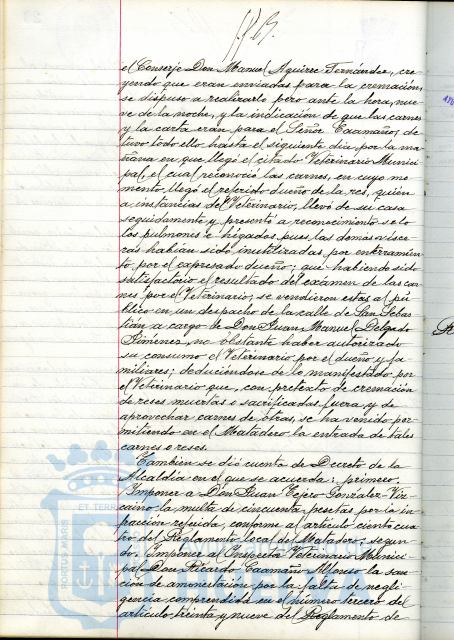 el Conserje Don Manuel Aguirre Fernández, cre-
yendo que eran enviadas para la cremación,
se dispuso a realizarlo pero ante la hora, nue-
ve de la noche, y la indicación de que las carnes
y la carta eran para el Señor Caamaño, de-
tuvo todo ello hasta el siguiente día, por la ma-
ñana en que llegó el citado Veterinario Munici-
pal, el cual reconoció las carnes, en cuyo mo-
mento, llegó el referido dueño de la res, quién
a instancias del Veterinario, llevó de su casa
seguidamente y presentó a reconocimiento solo
los pulmones e hígados pues las demás vísce-
ras habían sido inutilizadas por enterramien-
to, por el expresado dueño; que habiendo sido
satisfactorio el resultado del examen de las car-
nes por el Veterinario, se vendieron estas al pú-
blico en un despacho de la calle de San Sebas-
tián a cargo de Don Juan Manuel Delgado
Jiménez, no obstante haber autorizado
su consumo el Veterinario por el dueño y fa-
miliares; deduciéndose de lo manifestado por
el Veterinario que, con pretexto de cremación
de reses muertas o sacrificadas fuera, y de
aprovechar carnes de otras, se ha venido per-
mitiendo en el Matadero la entrada de tales
carnes o reses.
También se dió cuenta de Decreto de la
Alcaldía en el que se acuerda: primero,
Imponer a Don Juan Tejero González-Viz-
caino la multa de cincuenta pesetas por la in-
fracción referida, conforme al artículo ciento cua-
tro del Reglamento local del Matadero; segun-
do, Imponer al Inspector Veterinario Munici-
pal Don Ricardo Caamaño Alfonso la san-
ción de amonestación por la falta de negli-
gencia comprendida en el número tercero del
artículo treinta y nueve del Reglamento de
ET TERRA
PORTUS MARIS